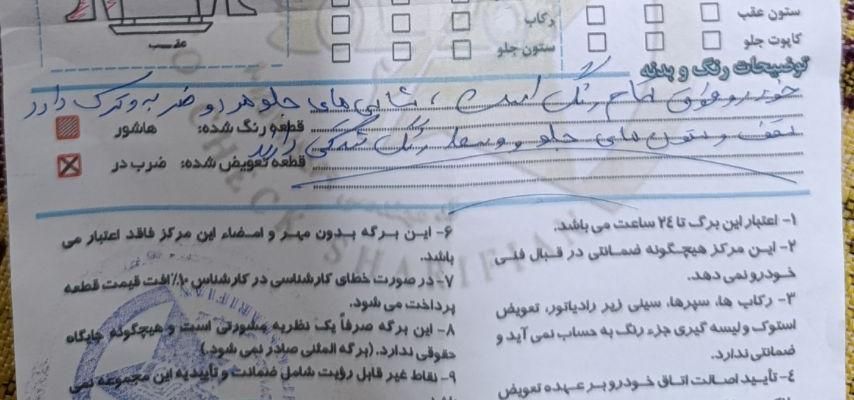 ستون عقب
رکاب
کاپوت جلو
ستون جلو
عقب
توضیحات رنگ و بدنه
خودرو فوق تمام رنگ است ، شاسی های جلو هر دو ضربه و ترک دارد
سقف و ستون های جلو و وسط رنگ شدگی دارد
قطعه رنگ شده: هاشور
قطعه تعویض شده: ضرب در
۱- اعتبار این برگ تا ۲۴ ساعت می باشد.
۲- این مرکز هیچگونه ضمانتی در قبال فنی
خودرو نمی دهد.
۳- رکاب ها، سپرها، سینی زیر رادیاتور، تعویض
استوک و لیسه گیری جزء رنگ به حساب نمی آید و
ضمانتی ندارد.
۴- تأیید اصالت اتاق خودرو بر عهده تعویض
۶- این برگه بدون مهر و امضاء این مرکز فاقد اعتبار می
باشد.
۷- در صورت خطای کارشناسی در کارشناس ۱۰٪ افت قیمت قطعه
پرداخت می شود.
۸- این برگه صرفاً یک نظریه مشورتی است و هیچگونه جایگاه
حقوقی ندارد. (برگه المثنی صادر نمی شود.)
۹- نقاط غیر قابل رؤیت شامل ضمانت و تأییدیه این مجموعه نمی
CHECK SHARIFIAN